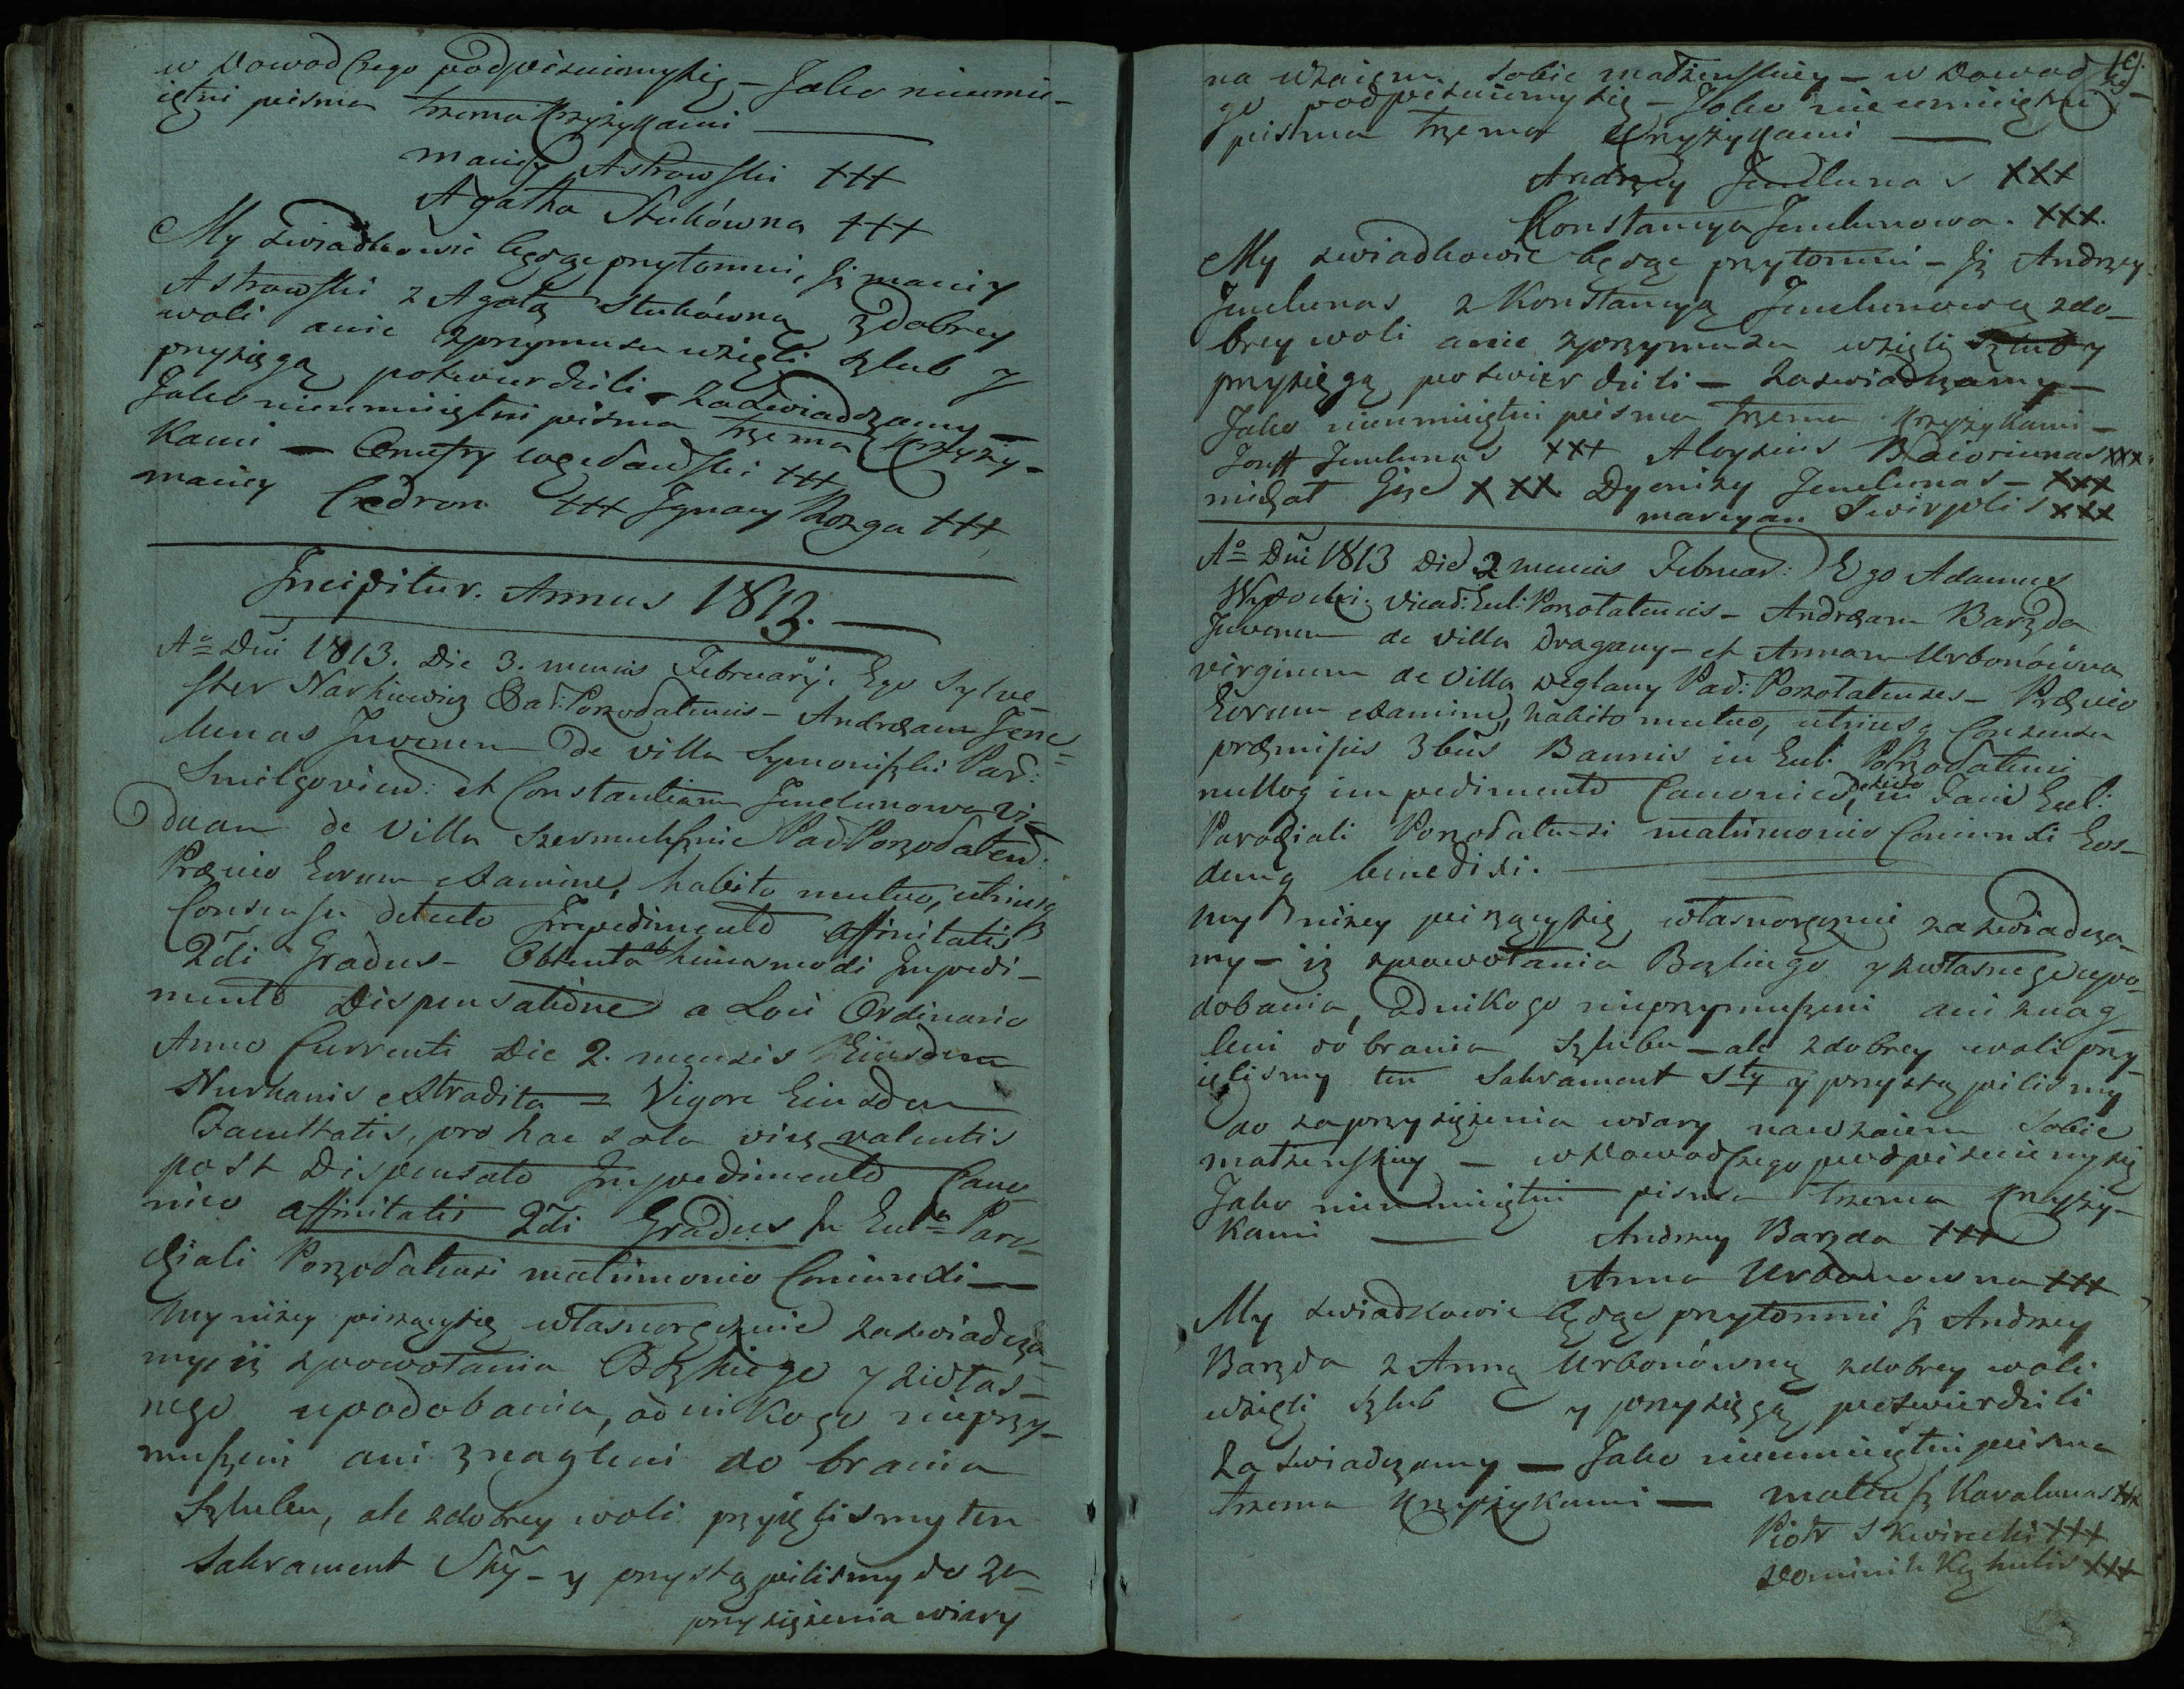 w Dowod czego podpisuiemysię – Jako nieumie-
iętni pisma trzema krzyżykami
Maciey Astrowski +++
Agatha Stukówna +++
My swiadkowie będąc przytomni, Jż maciey
Astrowski z Agatą Stukówną zdobrey
woli anie zprzymusu wzięli szlub y
przysięgą potwierdzili – zaswiadczamy –
Jako nieumieiętni pisma trzema krzyży-
kami – Onufry +++
maciey Cedron +++ Jgnacy Rozga +++
Incipitur. Annus 1813.
Aº Dñi 1813. Die 3. mensis Februarij. Ego Sylve-
ster Narkiewicz Par: Pozodatensis – Andrzeam Jene=
lunas Juvenem de villa Symoniszki Par:
Smilgovien: et Constantiam Jenelunowa Vi-
duam de Villa Par Ponzodaten:
Prævio Eorum examine, habito mutuo, utriusq
Consensu detecto Impedimento affinitatis
2di Gradus – Obtenta ab huiusmodi Impedi-
mento Dispensatione a Loci Ordinario
Anno Currenti Die 2. mensis Eiusdem
Nurkanis extradita = Vigore Eiusdem
Facultatis, pro hac sola vice valentis
post Dispensato Impedimento Cano
nico affinitatis 2di Gradus In Eccla Paro-
chiali Ponzodatensi matrimonio Coniunxi –
My niżey piszącysię własnoręcznie zaswiadcza-
my, iż zpowołania Bozkiego y zwłas=
nego upodobania, od nikogo nieprzy-
muszeni ani znagleni do brania
Szlubu, ale zdobrey woli przyięlismy ten
Sakrament Sty – y przystąpilismy do za=
przysiężenia wiary
na wzaiem sobie małżenskiey – w Dowod cze-
go podpisuiemysię – Jako nieumieiętni
pisma trzema krzyżykami
Andrzey Jenelunas XXX
Konstancya Jenelunowa. XXX.
My swiadkowie będąc przytomni – Jż Andrzey
Jenelunas z Konstancyą Jenelunową zdo-
brey woli anie zprzymusu wzięli szlub y
przysięgą potwierdzili – zaswiadczamy –
Jako nieumieiętni pisma trzema krzyżykami –
Jozeff Jenelunas XXX Aloyzius Baiorunas XXX
michał Giże XXX Dyonizy Jenelunas – XXX
maryan Swirplis XXX
Aº Dñi 1813 Die 2 mensis Februar: Ego Adamus
Wysocki. Vicar: Eccl: Ponzodatensis – Andrzeam Barzda
Juvenem de villa Dragany – et Annam Urbonówna
virginem de Villa Weglany Par: Ponzotatenses – Prævio
Eorum examine, habito mutuo, utriusq Consensu
præmissis 3bus Bannis in Eccl: Ponzodatensi
nulloq impedimento Canonico detecto, in Facie Eccl:
Parochiali Ponzodatensi matrimonio Coniunxi Eos-
demq benedixi.
My niżey piszącysię własnoręcznie zaswiadcza-
my – iż zpowołania Bozkiego y zwłasnego upo-
dobania, od nikogo nieprzymuszeni ani znag
leni do brania Szlubu – ale zdobrey woli przy-
ięlismy ten Sakrament Sty y przystąpilismy
do zaprzysiężenia wiary nawzaiem Sobie
małżenskiey – w Dowod czego podpisuiemysię
Jako nieumieiętni pisma trzema krzyży-
kami Andrzey Barzda +++
Anna Urbonowna +++
My swiadkowie będąc przytomni Jż Andrzey
Barzda z Anną Urbonówną zdobrey woli
wzięli szlub y przysięgą potwierdzili
zaswiadczamy – Jako nieumieiętni pisma
trzema krzyżykami – mateusz Karalunas +++
Piotr Skwirecki +++
Dominik +++